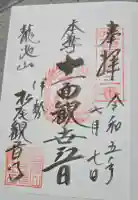 奉拝
令和五年
六月七日
本尊
十一面観世音
龍池山
伊勢
松尾観音寺